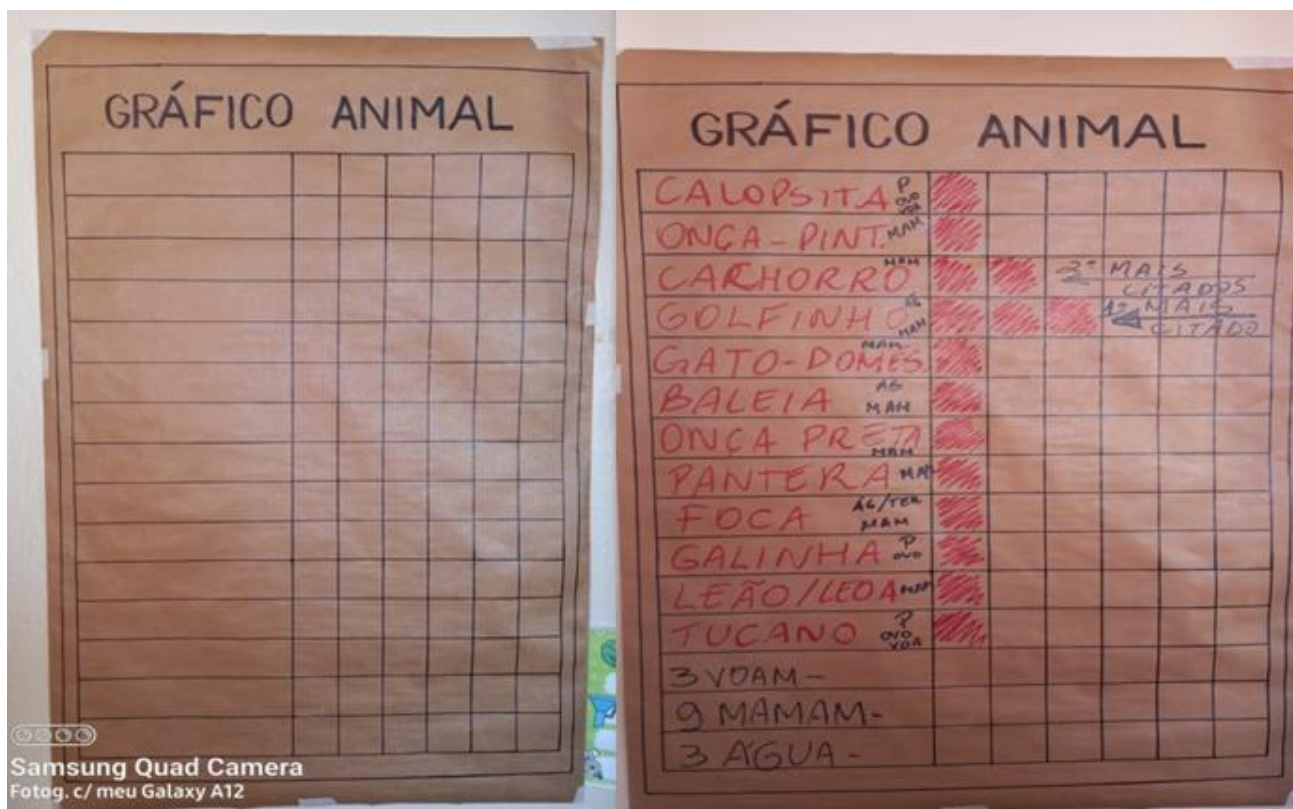 GRÁFICO ANIMAL
Samsung Quad Camera
Fotog. c/ meu Galaxy A12
GRÁFICO ANIMAL
CALOPSITA P OVO VOA
ONÇA-PINT. MAM
CACHORRO MAM 2º MAIS CITADOS
GOLFINHO ÁG MAM 1º MAIS CITADO
GATO-DOMES MAM
BALEIA AG MAM
ONÇA PRETA MAM
PANTERA MAM
FOCA ÁG/TER MAM
GALINHA P OVO
LEÃO/LEOA MAM
TUCANO P OVO VOA
3 VOAM-
9 MAMAM-
3 ÁGUA-